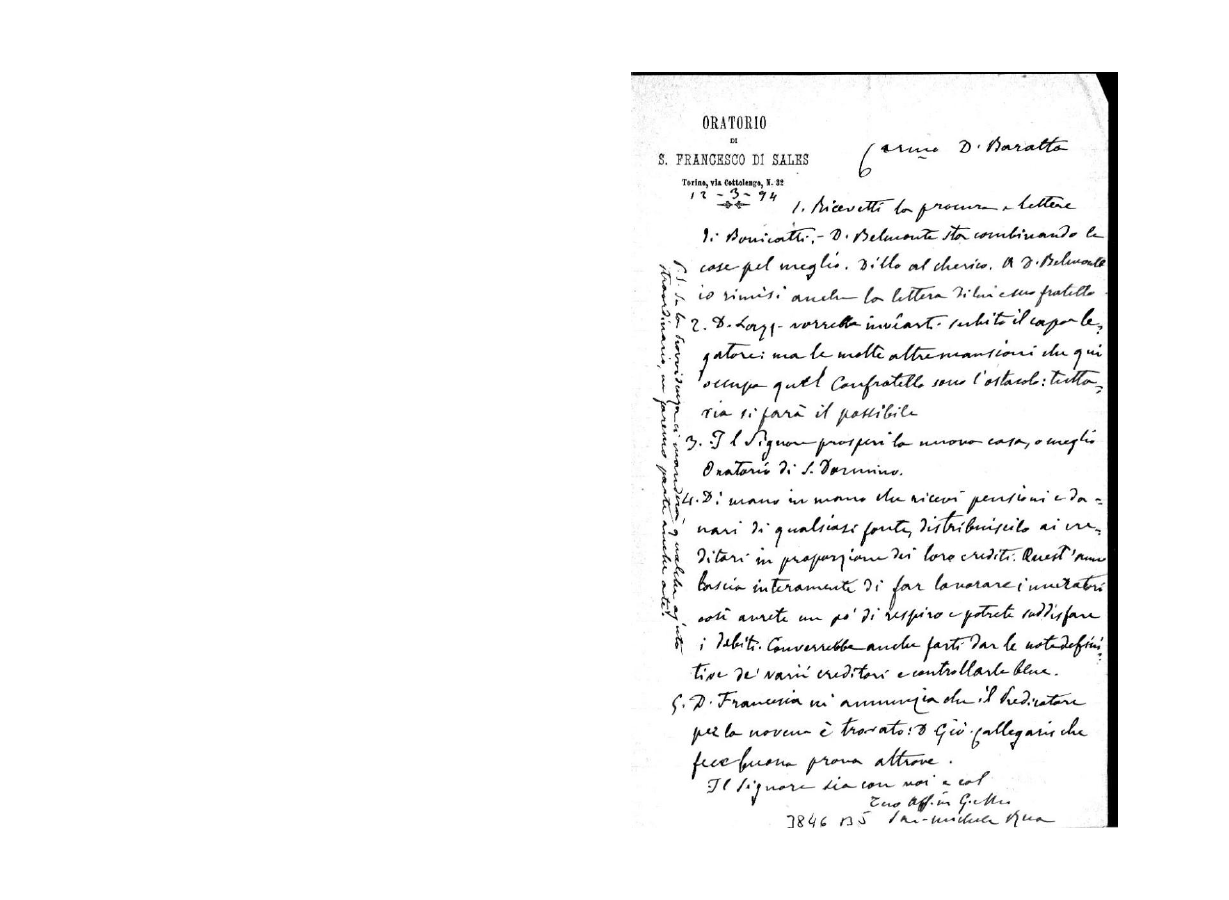 ORATORIO
DI
S. FRANCESCO DI SALES
Torino, via Cottolengo, N. 32
12-3-94
Carmo D. Baratta
1. Ricevetti la procura e lettere
di Bonicatti,- D. Belmonte sta combinando le
cose pel meglio. Dillo al cherico. A D. Belmonte
io rimisi anche la lettera di lui e suo fratello
2. D. vorrebbe inviarti subito il capo le=
gatore: ma le molte altre mansioni che qui
occupa quel Confratello sono l'ostacolo: tutta=
via si farà il possibile
3. Il Signore prosperi la nuova casa, o meglio
Oratorio di S. Donnino.
4. Di mano in mano che ricevi pensioni e da=
nari di qualsiasi fonte, distribuiscilo ai cre=
ditori in proporzione dei loro crediti. Quest'anno
lascia interamente di far lavorare i muratori
così avrete un po' di respiro e potrete soddisfare
i debiti. Converrebbe anche farti dar le note defini=
tive de' varii creditori e controllarle bene.
5. D. Francesia mi annunzia che il Predicatore
per la novena è trovato: D Gio. Callegaris che
fece buona prova altrove.
Il Signore sia con noi e col
Tuo Aff. in G. e M.
Sac. Michele Rua
3846 B5
P.S. Se la Provvidenza ci manderà qualche ajuto
straordinario, ne faremo parte anche a te!